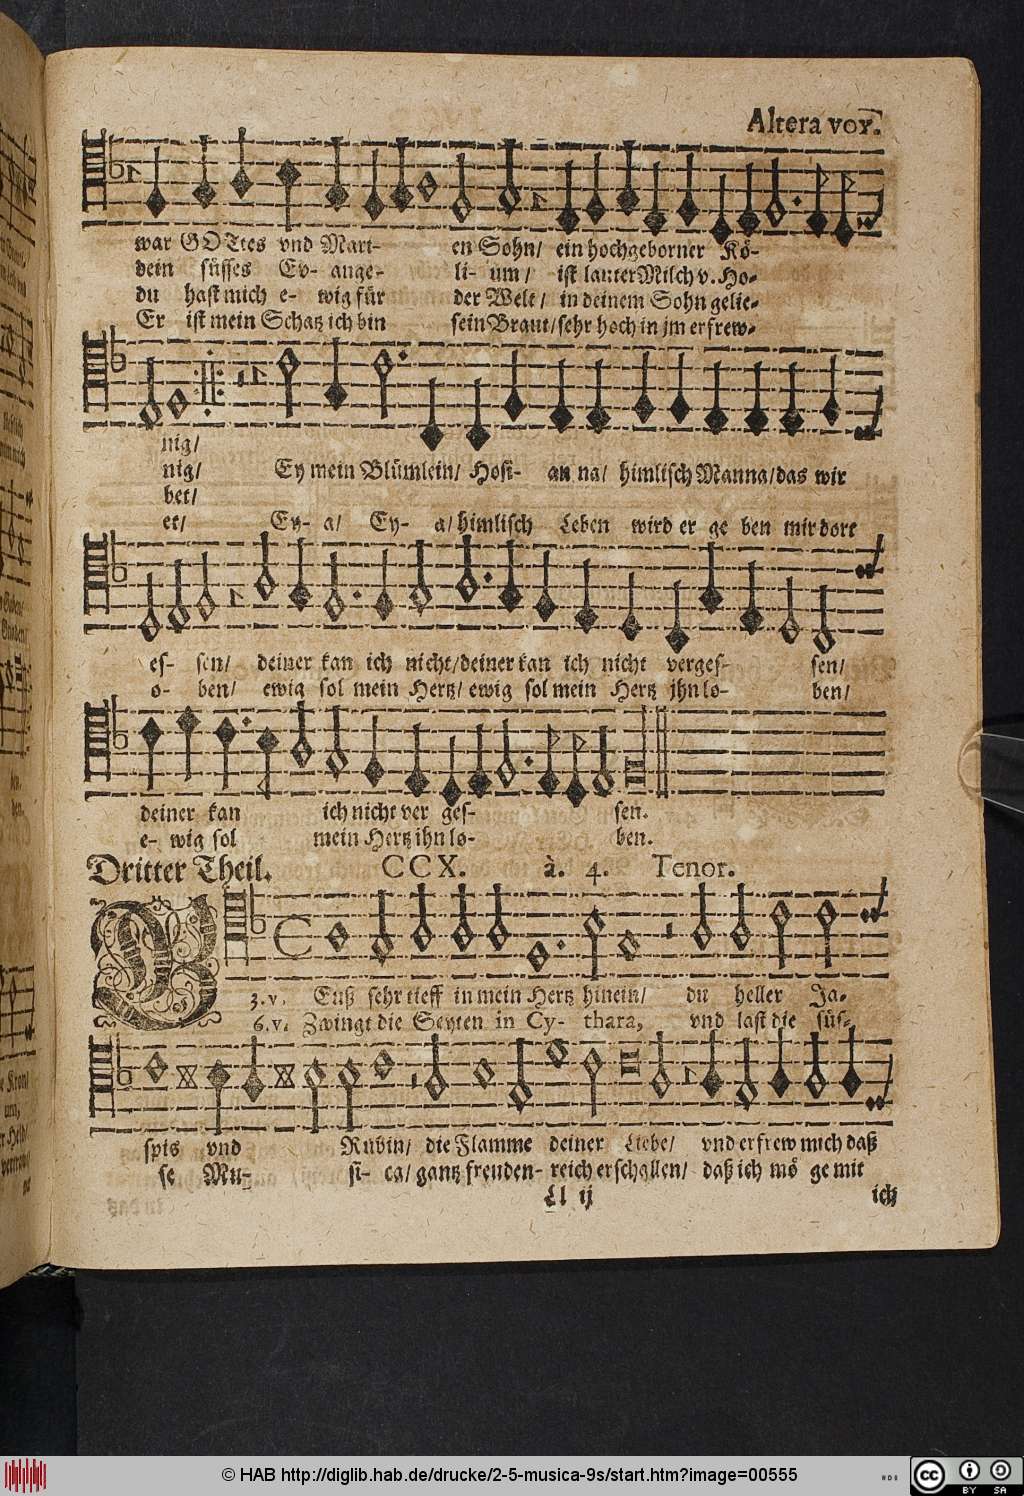 Altera vox.
war GOttes vnd Mari- en Sohn/ ein hochgeborner Kö-
dein süsses Ev- ange- li- um/ ist lauter Milch v. Ho-
du hast mich e- wig für der Welt/ in deinem Sohn gelie-
Er ist mein Schatz ich bin sein Braut/ sehr hoch in jm erfrew-
nig/
nig/ Ey mein Blümlein/ Hosi- an na/ himlisch Manna/ das wir
bet/
et/ Ey- a/ Ey- a/ himlisch Leben wird er ge ben mir dort
es- sen/ deiner kan ich nicht/ deiner kan ich nicht verges- sen/
o- ben/ ewig sol mein Hertz/ ewig sol mein Hertz jhn lo- ben/
deiner kan ich nicht ver ges- sen.
e- wig sol mein Hertz ihn lo- ben.
Dritter Theil. CCX. à. 4. Tenor.
3.v. GEuß sehr tieff in mein Hertz hinein/ du heller Ja-
6.v. Zwingt die Seyten in Cy- thara, vnd last die süs-
spis vnd Rubin/ die Flamme deiner Liebe/ vnd erfrew mich daß
se Mu- si- ca/ gantz freuden- reich erschallen/ daß ich mö ge mit
Ll ij ich
© HAB http://diglib.hab.de/drucke/2-5-musica-9s/start.htm?image=00555
cc BY SA